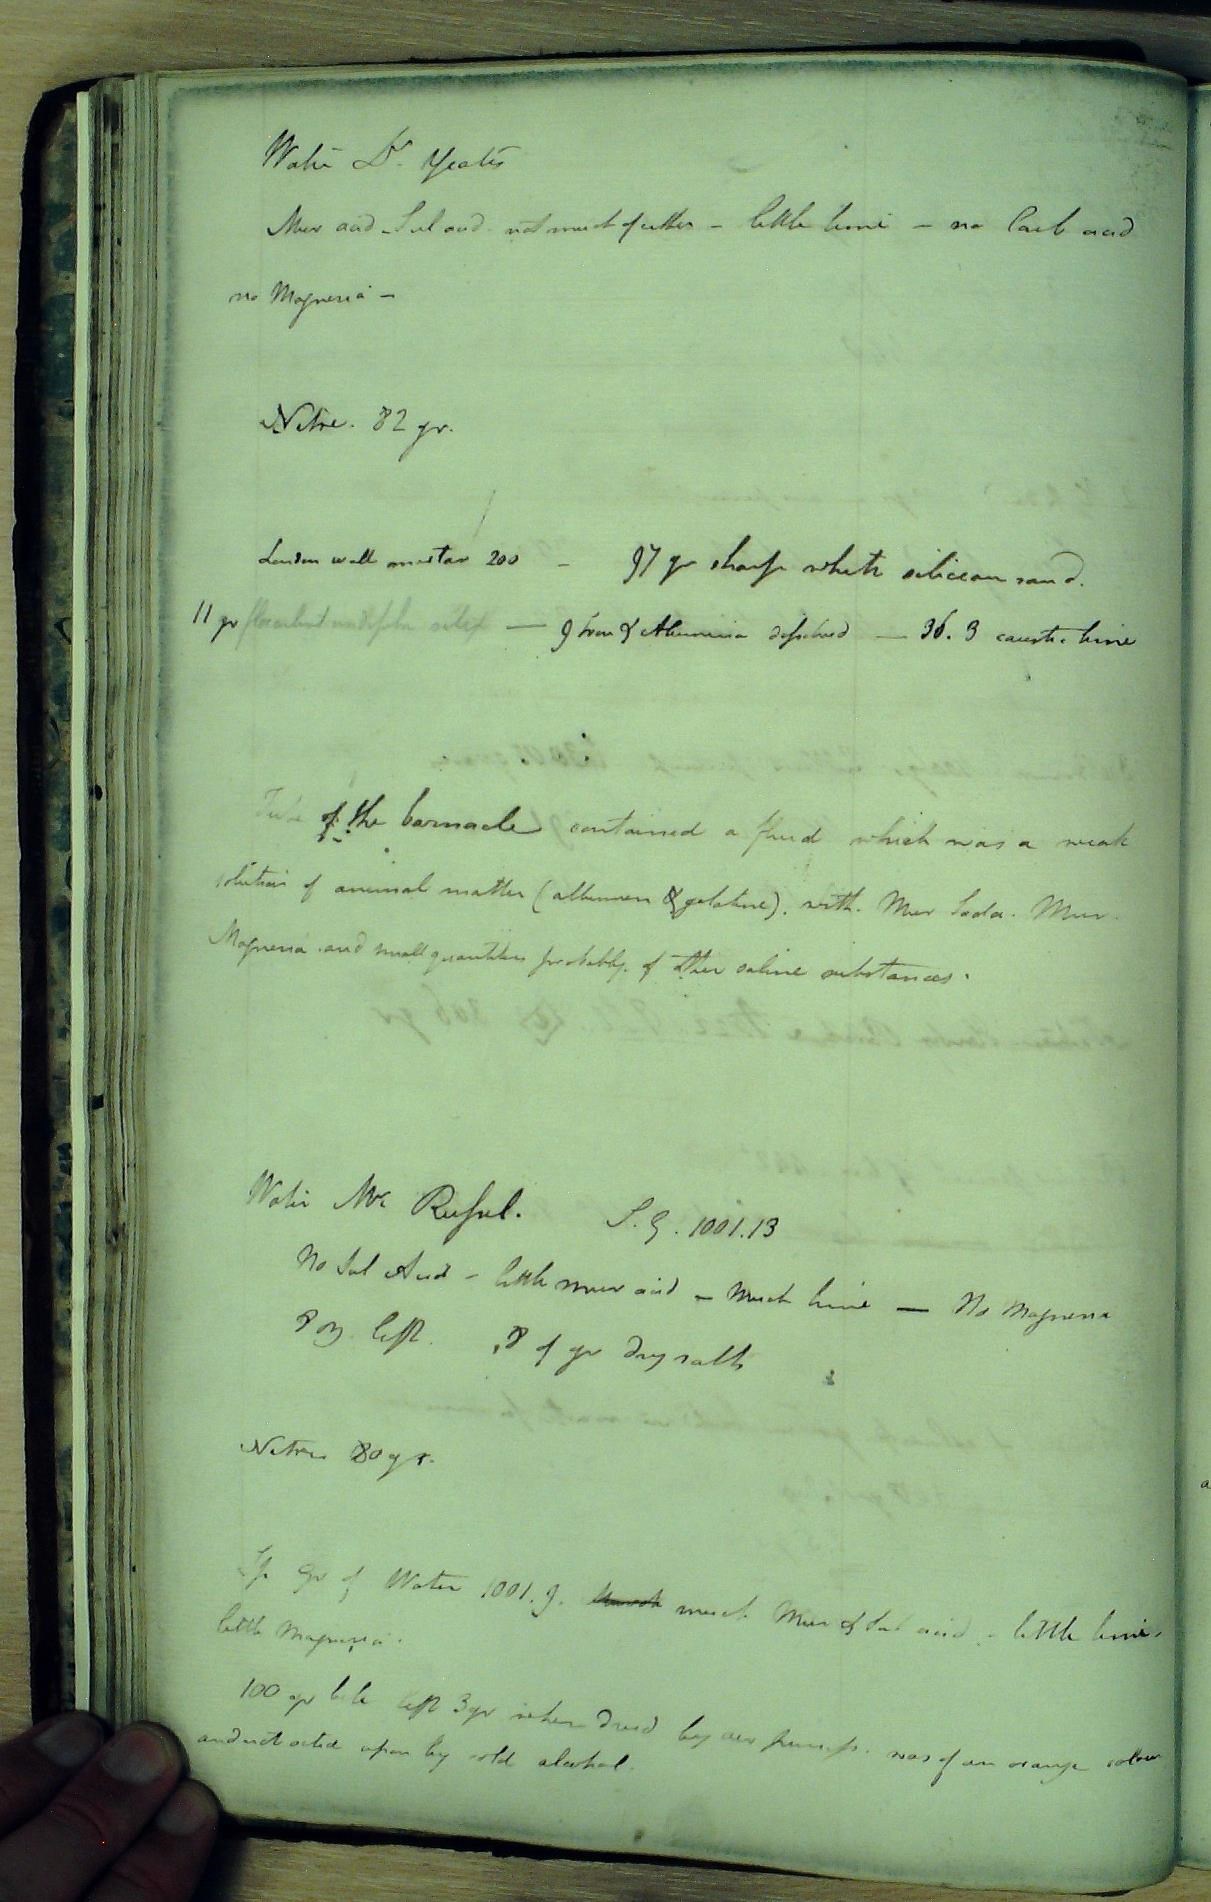 Water Dr. Yeats
Mur acid - Sul acid - not much of either - little lime - no Carb acid
no Magnesia -
Nitre. 82 gr.
London wall mortar 200 - 97 gr sharp white silicious sand.
11 gr flocculent silex - 9 Iron & Alumina dissolved - 36.3 caustic lime
Tube of the barnacle contained a fluid which was a weak
solution of animal matter (albumen & gelatine). with. Mur Soda. Mur.
Magnesia and small quantities probably of other saline substances.
Water Mr Russel. S.G. 1001.13
No Sul Acid - little mur acid - Much lime - No Magnesia
8 oz. left. .8 of gr dry salts
Nitre 80 gr.
Sp Gr of Water 1001.9. much Mur & Sul acid - little lime.
little Magnesia.
100 gr bile left 3 gr when dried by air pump. was of an orange colour
and not acted upon by cold alcohol.